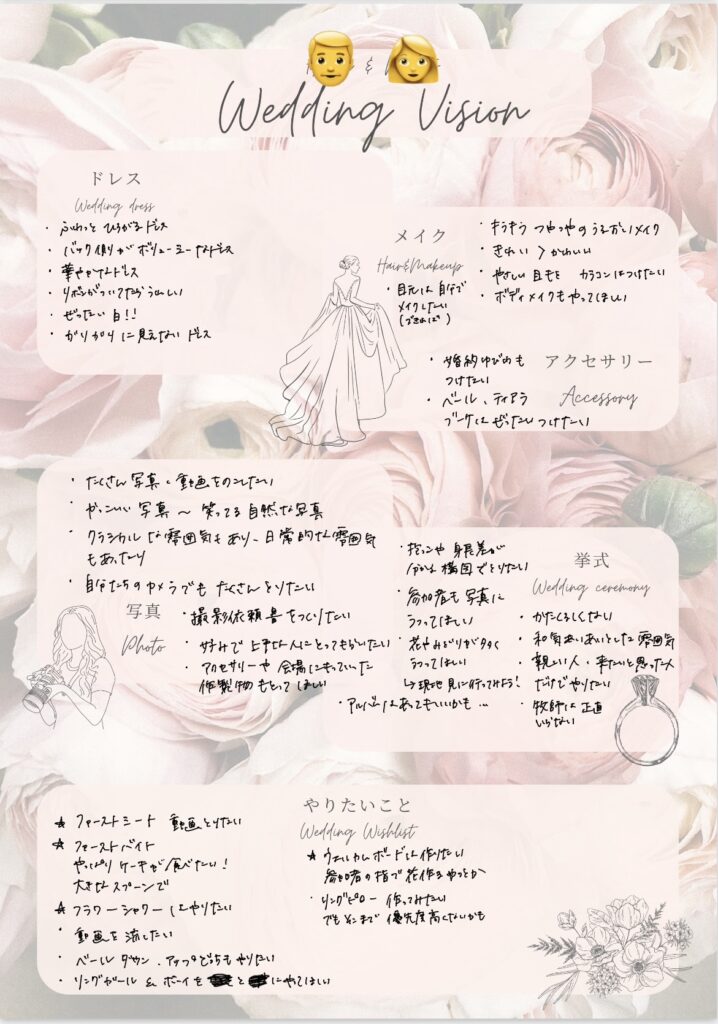 &
Wedding Vision
ドレス
Wedding dress
・ふわっと ひろがるドレス
・バック側がボリューミーなドレス
・華やかなドレス
・リボンがついてたらうれしい
・ぜったい白!!
・がりがりに見えない ドレス
メイク
Hair&Makeup
・目元は自分で
メイクしたい
(できれば)
・キラキラ つやつやのうるおいメイク
・きれい > かわいい
・やさしい目もと カラコンはつけたい
・ボディメイクもやってほしい
アクセサリー
Accessory
・婚約ゆびわも
つけたい
・ベール、ティアラ
ブーケはぜったいつけたい
・たくさん写真・動画をのこしたい
・かっこいい 写真 〜 笑ってる自然な写真
・クラシカルな雰囲気もあり、日常的な雰囲気
もあったり
・自分たちのカメラでも たくさんとりたい
写真
Photo
・撮影依頼書をつくりたい
・好みで上手な人にとってもらいたい
・アクセサリーや 会場にもっていった
作製物もとってほしい
・身長差が
分かる構図でとりたい
・参加者も写真に
うつってほしい
・花やみどりが多く
うつってほしい
↳現地見に行ってみよう!
・アルバムはあってもいいかも …
挙式
Wedding ceremony
・かたくるしくない
・和気あいあいとした雰囲気
・親しい人・来たいと思った人
だけでやりたい
・牧師は正直
いらない
やりたいこと
Wedding Wishlist
☆ ファーストミート 動画とりたい
☆ ファーストバイト
やっぱり ケーキが食べたい!
大きなスプーンで
☆ フラワーシャワーはやりたい
・動画を流したい
・ベールダウン、アップどっちもやりたい
・リングガール & ボーイを と にやってほしい
☆ ウェルカムボードは作りたい
参加者の指で花作るやつとか
・リングピロー 作ってみたい
でもそこまで 優先度高くないかも